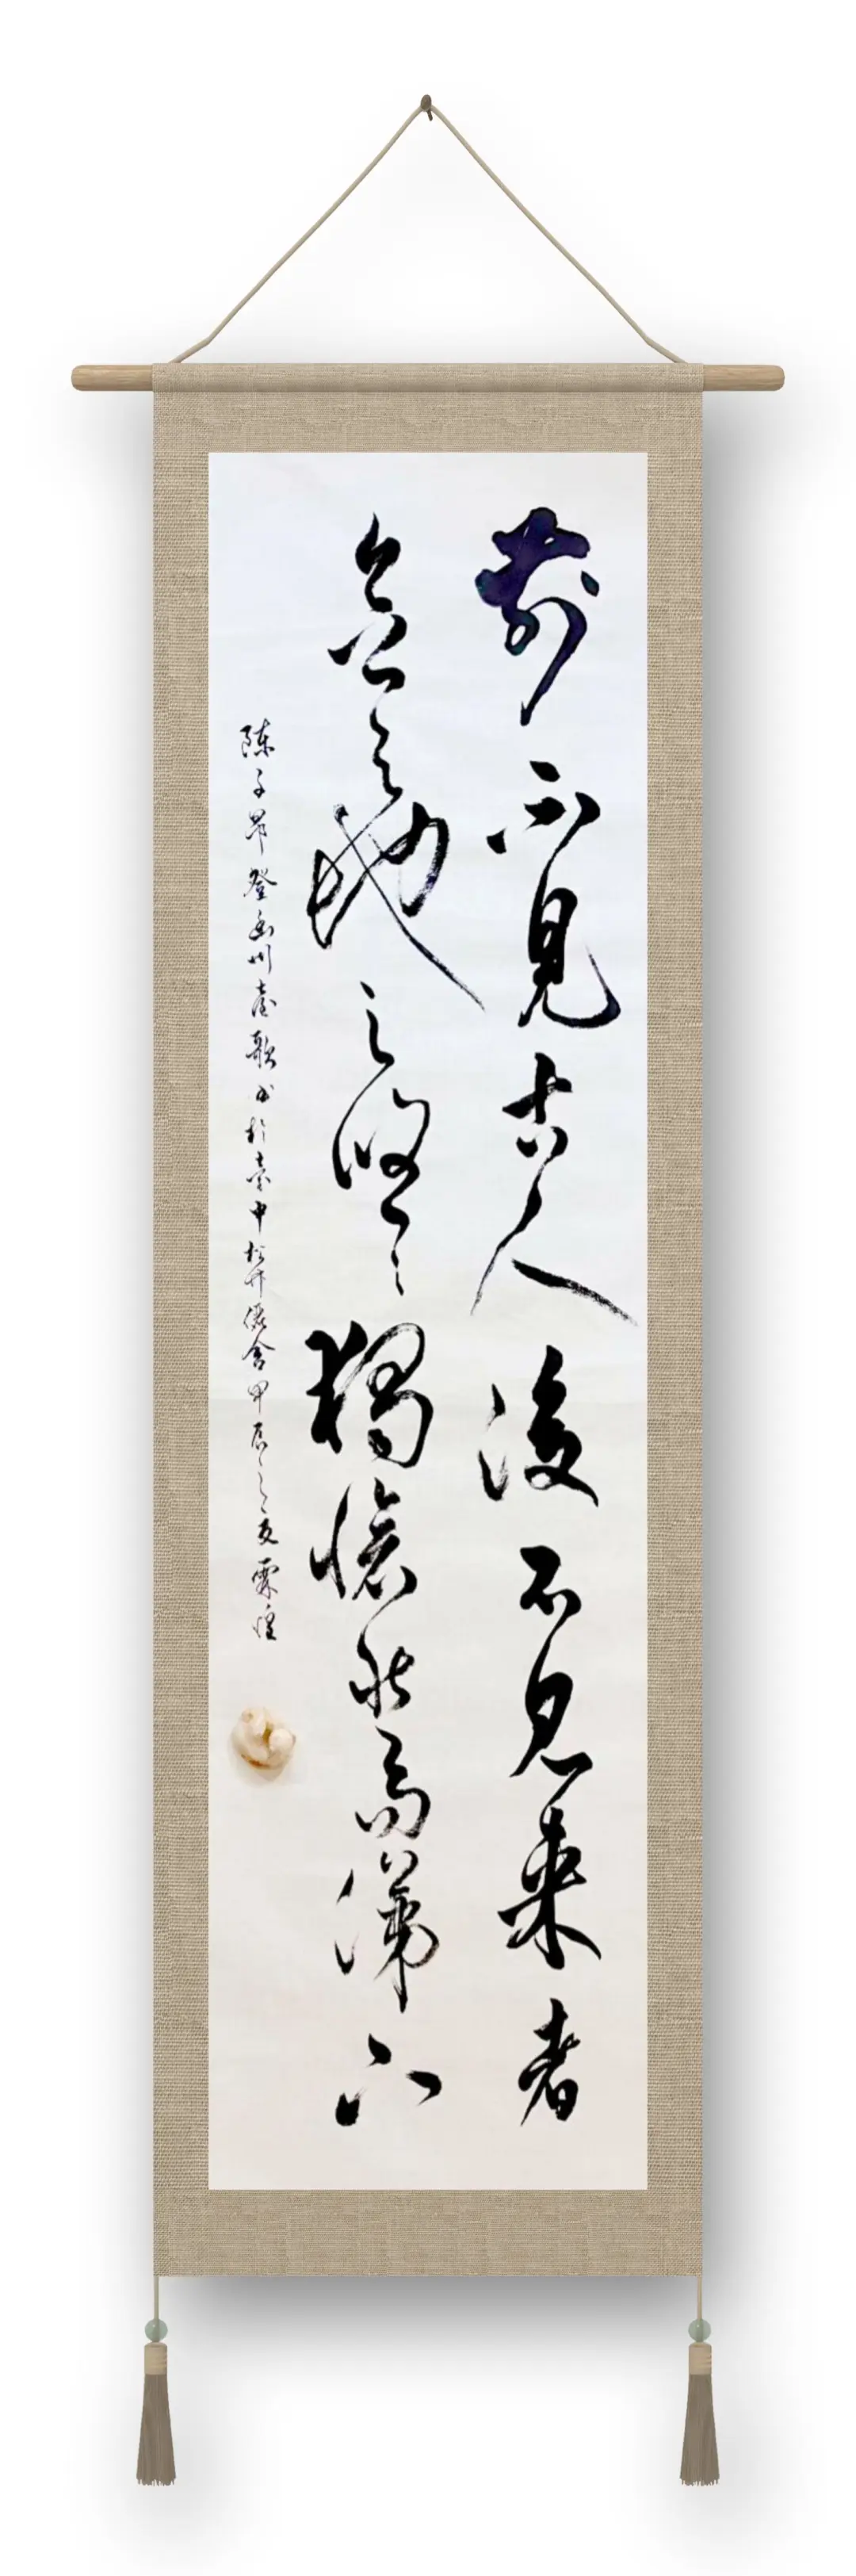 前不見古人後不見來者
念天地之悠悠獨愴然而涕下
陳子昂登幽州臺歌書於臺中松竹舍甲辰之夏霖煌